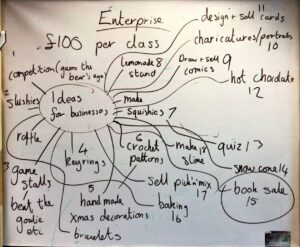 Enterprise
£100 per class
design + sell 11 cards
charicatures/portraits
10
Draw + sell 9
comics
hot chocolate
12
lemonade 8
stand
competition (guess the
bear's age)
1
2
slushies
Ideas
for businesses
make
Squishies 7
raffle
3
game
stalls
beat the
goalie
etc
4
Keyrings
5
hand made
xmas decorations
bracelets
6
crochet
patterns
make 18
slime
quiz 13
snow cone 14
book sale
15
sell pick n mix
17
baking
16